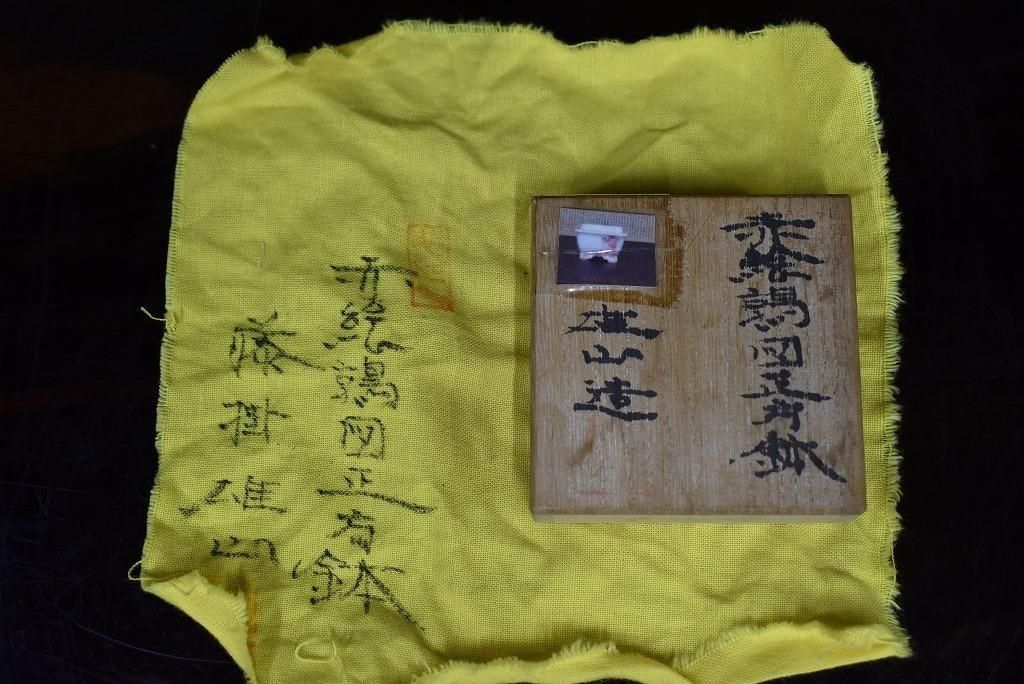 赤絵鶉図正方鉢
雄山造
赤絵鶉図正方鉢
藤掛雄山